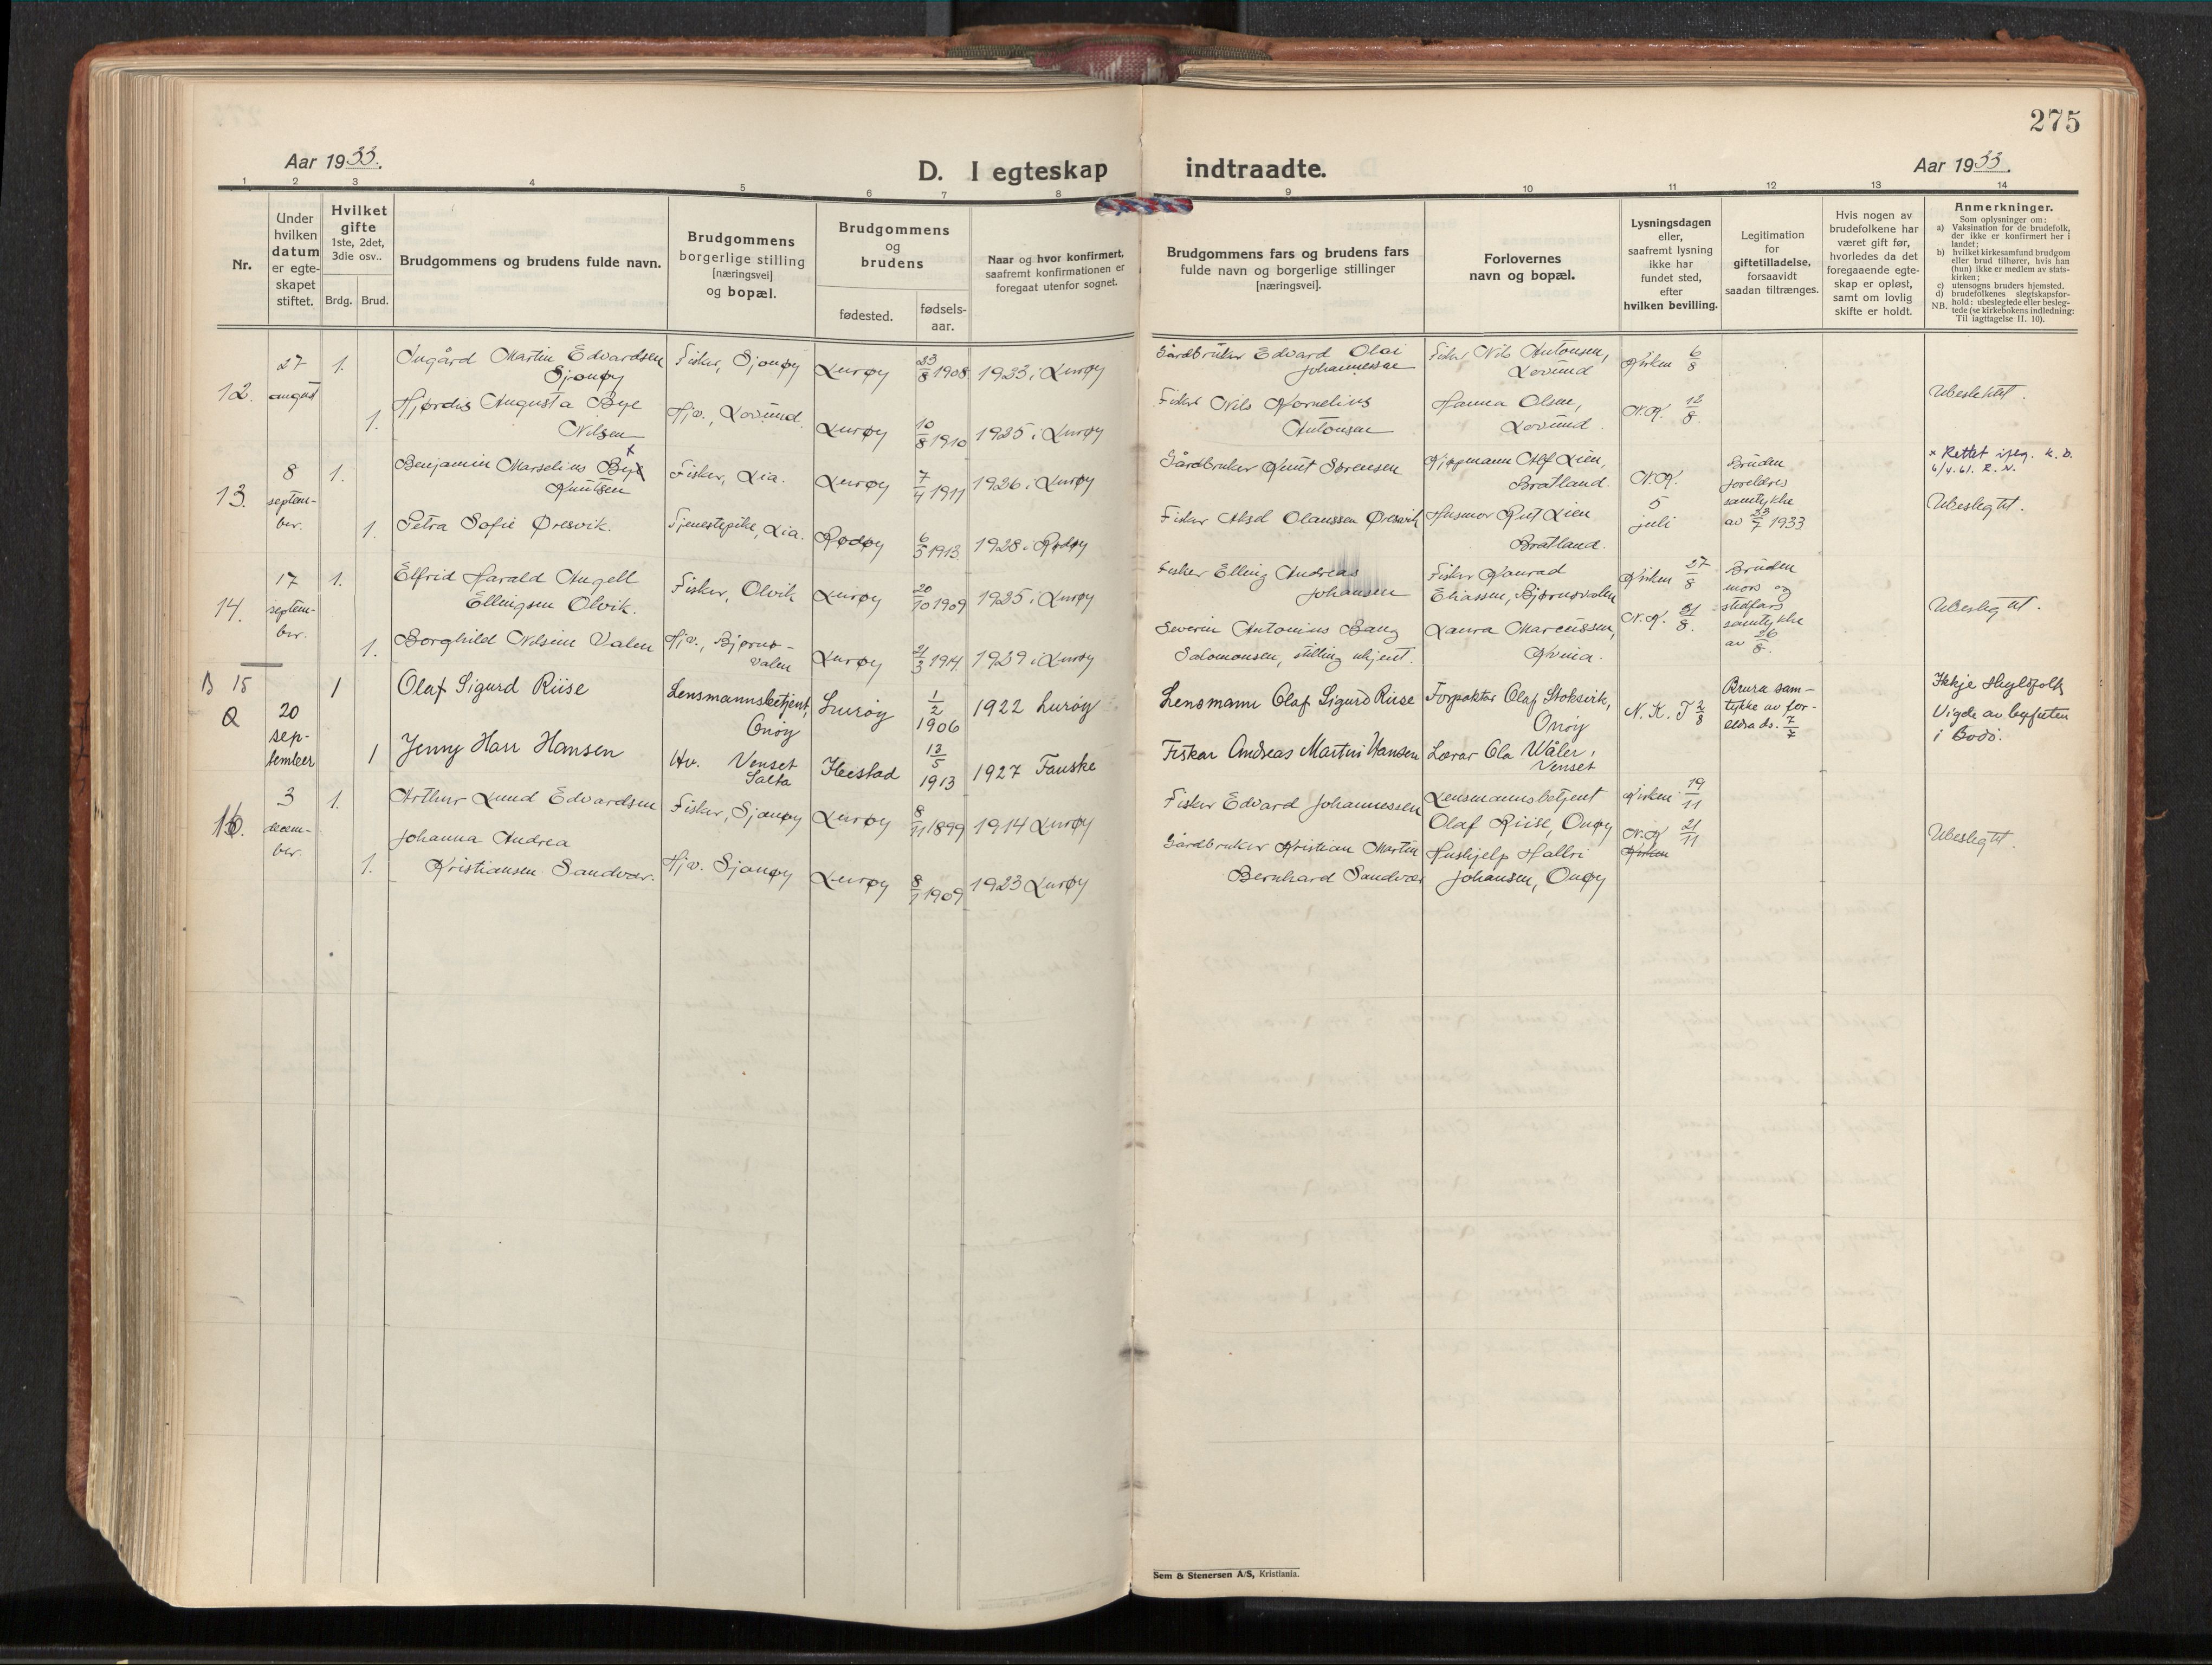 275
Aar 1933.
D. I egteskap indtraadte.
Aar 1933.
1 2 3 4 5 6 7 8 9 10 11 12 13 14
Nr.
Under
hvilken
datum
er egte-
skapet
stiftet.
Hvilket
gifte
1ste, 2det,
3die osv..
Brdg. Brud.
Brudgommens og brudens fulde navn.
Brudgommens
borgerlige stilling
[næringsvei]
og bopæl.
Brudgommens
og
brudens
fødested.
fødsels-
aar.
Naar og hvor konfirmert,
saafremt konfirmationen er
foregaat utenfor sognet.
Brudgommens fars og brudens fars
fulde navn og borgerlige stillinger
[næringsvei].
Forlovernes
navn og bopæl.
Lysningsdagen
eller,
saafremt lysning
ikke har
fundet sted,
efter
hvilken bevilling.
Legitimation
for
giftetilladelse,
forsaavidt
saadan tiltrænges.
Hvis nogen av
brudefolkene har
været gift før,
hvorledes da det
foregaaende egte-
skap er opløst,
samt om lovlig
skifte er holdt.
Anmerkninger.
Som oplysninger om:
a) Vaksination for de brudefolk,
der ikke er konfirmert her i
landet;
b) hvilket kirkesamfund brudgom
eller brud tilhører, hvis han
(hun) ikke er medlem av stats-
kirken;
c) utensogns bruders hjemsted.
d) brudefolkenes slegtskapsfor-
hold: ubeslegtede eller besleg-
NB. tede (se kirkebokens indledning:
Til iagttagelse II. 10).
12.
27
august
1.
Ingård Martin Edvardsen
Sjonøy
Fisker, Sjonøy
Lurøy
23/8 1908
1923 i Lurøy
Gårdbruker Edvard Olai
Johannessen
Fisker Nils Antonsen,
Lovund
Kirken 6/8
1.
Hjørdis Augusta Bye
Nilsen
Hjv., Lovund.
Lurøy
10/8 1910
1925 i Lurøy
Fisker Nils Kornelius
Antonsen
Hanna Olsen,
Lovund.
N.K. 12/8.
Ubeslektet.
13.
8
septem-
ber.
1.
Benjamin Marselius Bye x
Knutsen
Fisker, Lia.
Lurøy
7/4 1911
1926 i Lurøy
Gårdbruker Knut Sørensen
Kjøpmann Alf Lien,
Bratland.
N.K.
5
juli
Bruden
foreldres
samtykke
av 23/7 1933
x Rettet ifølg. K. D.
6/4.61. R. N.
1.
Petra Sofie Øresvik.
Tjenestepike, Lia.
Rødøy
6/5 1913
1928 i Rødøy
Fisker Aksel Olaussen Øresvik
Husmor Rut Lien
Bratland.
Ubeslegtet.
14.
17
septem-
ber.
1.
Elfrid Harald Angell
Ellingsen Olvik.
Fisker, Olvik
Lurøy
20/10 1909
1925 i Lurøy
Fisker Elling Andreas
Johansen
Fisker Konrad
Eliassen, Bjørnsvalen
Kirken 27/8
N.K. 31/8.
Bruden
mors og
stedfars
samtykke
av 26/8.
1.
Borghild Nilsine Valen
Hjv., Bjørns-
valen
Lurøy
21/3 1914
1929 i Lurøy
Severin Antonius Bang
Salomonsen, stilling ukjent.
Laura Marcussen,
Kvina.
Ubeslegtet.
B 15
Q
20
sep-
tember
1
Olaf Sigurd Riise
Lensmannsbetjent,
Onøy
Lurøy
1/2 1906
1922 Lurøy
Lensmann Olaf Sigurd Riise
Forpaktar Olaf Stoksvik,
Onøy
N. K. T 2/8
Brura sam-
tykke av for-
eldra ds. 7/7
Ikkje Skyldfolk
Vigde av byfuten
i Bodø.
1
Jenny Harr Hansen
Hv. Venset
Salta
Heestad
13/5 1913
1927 Fauske
Fiskar Andreas Martin Hansen
Lærar Ola Wåler,
Venset
16.
3
decem-
ber.
1.
Arthur Lund Edvardsen
Fisker, Sjonøy
Lurøy
8/11 1899
1914 Lurøy
Fisker Edvard Johannessen
Lensmannsbetjent
Olaf Riise, Onøy
Kirken 19/11
N.K 21/11
Kirken
1.
Johanna Andrea
Kristiansen Sandvær.
Hjv. Sjonøy
Lurøy
8/1 1909
1923 Lurøy
Gårdbruker Kristian Martin
Bernhard Sandvær
Hushjelp Hallri
Johansen, Onøy
Ubeslegtet.
Sem & Stenersen A/S, Kristiania.